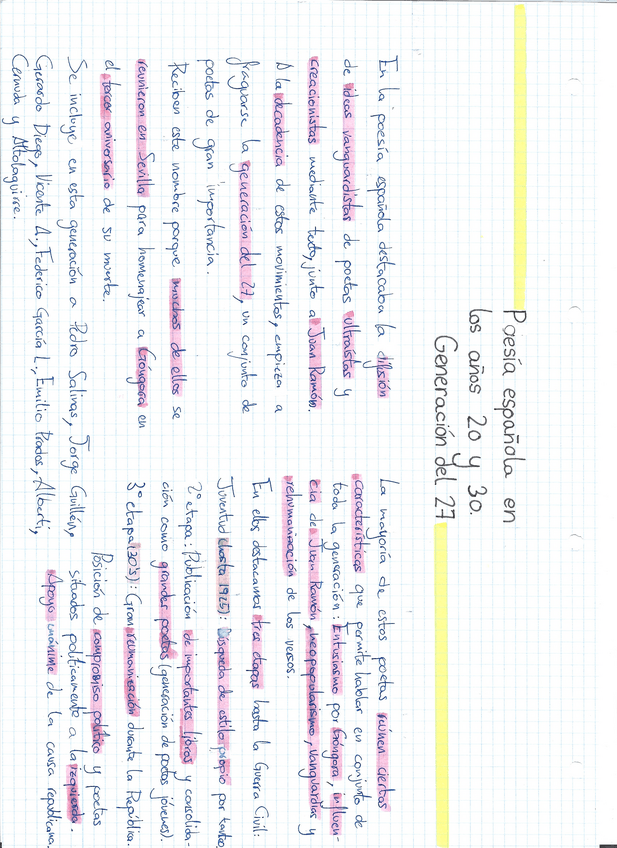 Poesía española en
los años 20 y 30.
Generación del 27
En la poesía española destacaba la difusión
de ideas vanguardistas de poetas ultraístas y
creacionistas mediante texto, junto a Juan Ramón.
A la decadencia de estos movimientos, empieza a
fraguarse la generación del 27, un conjunto de
poetas de gran importancia.
Reciben este nombre porque muchos de ellos se
reunieron en Sevilla para homenajear a Góngora en
el tercer aniversario de su muerte.
Se incluye en esta generación a Pedro Salinas, Jorge Guillén,
Gerardo Diego, Vicente A., Federico García L., Emilio Prados, Alberti,
Cernuda y Altolaguirre.
La mayoría de estos poetas reúnen ciertas
características que permite hablar en conjunto de
toda la generación: Entusiasmo por Góngora, influen-
cia de Juan Ramón, neopopularismo, vanguardias y
rehumanización de los versos.
En ellos destacamos tres etapas hasta la Guerra Civil:
Juventud (hasta 1925): Búsqueda de estilo propio por tanteo
2º etapa: Publicación de importantes libros y consolida-
ción como grandes poetas (generación de poetas jóvenes).
3º etapa (30's): Gran rehumanización durante la República.
Posición de compromiso político y poetas
situados políticamente a la izquierda.
Apoyo unánime de la causa republicana.